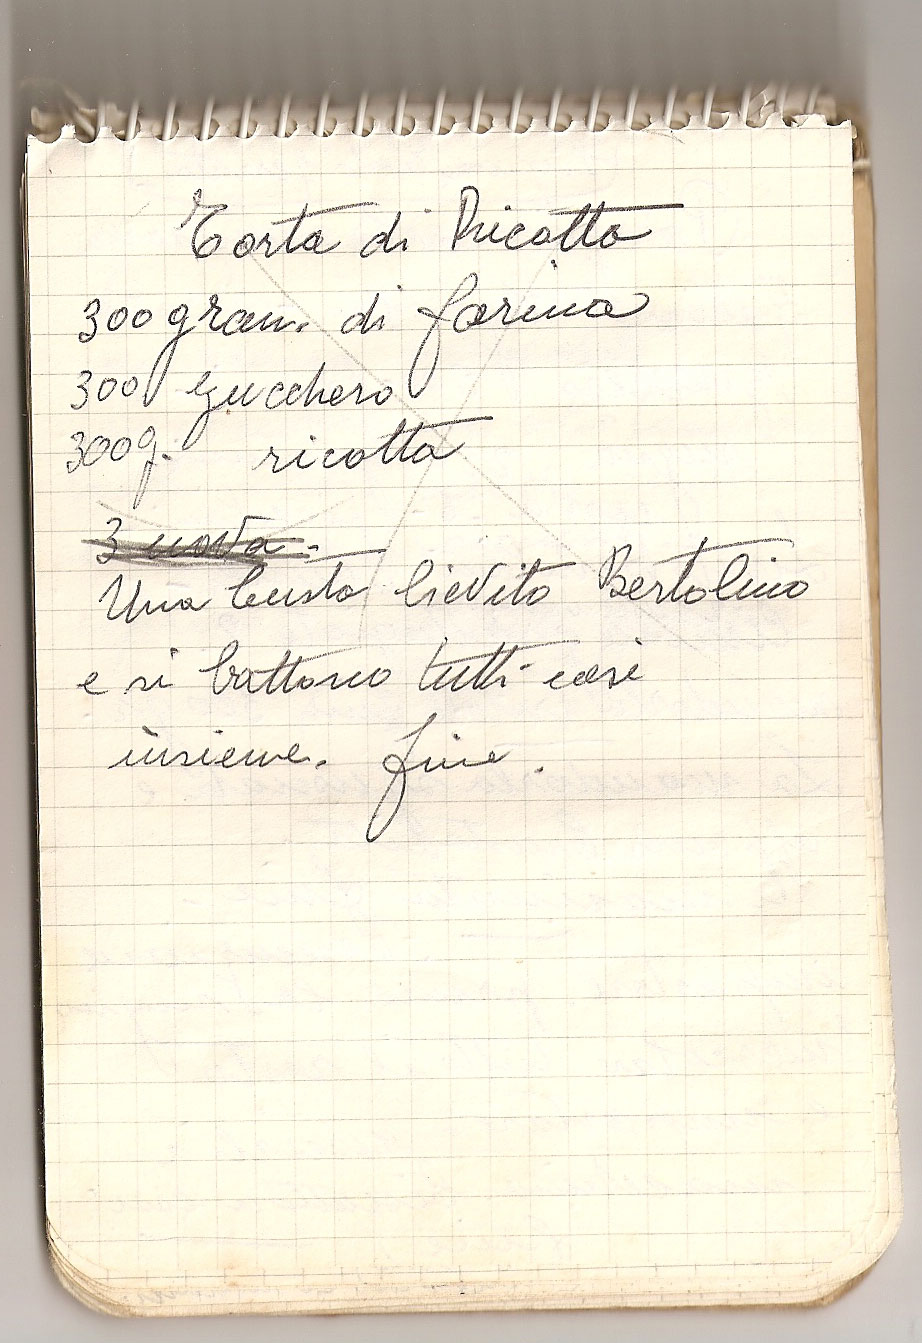 Torta di Ricotta
300 gram. di farina
300 zucchero
300g. ricotta
3 uova.
Una busta lievito Bertolino
e si battono tutti cosi
insieme. fine.